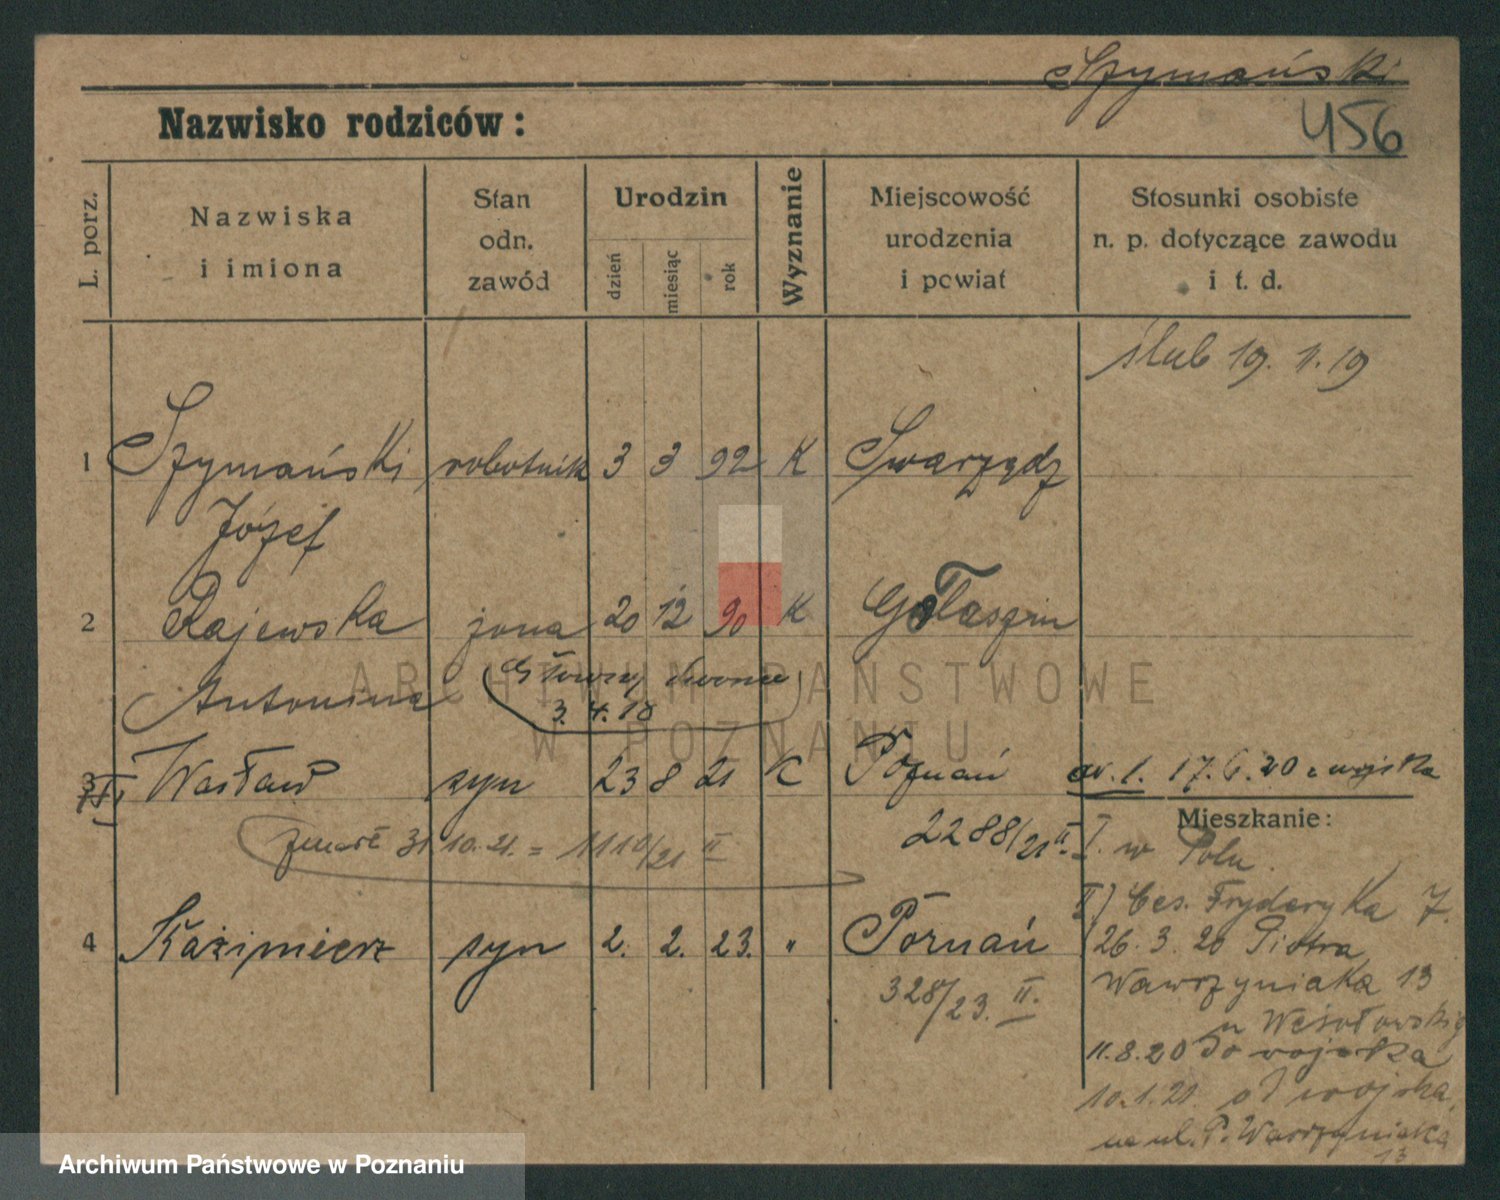 Szymański
456
Nazwisko rodziców:
L. porz.
Nazwiska
i imiona
Stan
odn.
zawód
Urodzin
dzień
miesiąc
rok
Wyznanie
Miejscowość
urodzenia
i powiat
Stosunki osobiste
n. p. dotyczące zawodu
i t. d.
ślub 19. 11. 19
1 Szymański robotnik 3 3 92 K Swarzędz
Józef
2 Rajewska żona 20 12 90 K Gołaszyn
Antonina
3.4.18
3 Wacław syn 23 8 21 K Poznań
17.6.20 z wojska
zmarł 31 10. 21. = 1110/21 II
2288/21 II.
Mieszkanie:
I. w Polu
II) Ces. Fryderyka 7.
4 Kazimierz syn 2. 2. 23. " Poznań
328/23. II.
26. 3. 20 Piotra
Wawrzyniaka 13
u
11.8.20 do wojska
10.1.21 od wojska,
na ul. P. Wawrzyniaka
13
ARCHIWUM PAŃSTWOWE
W POZNANIU
Archiwum Państwowe w Poznaniu